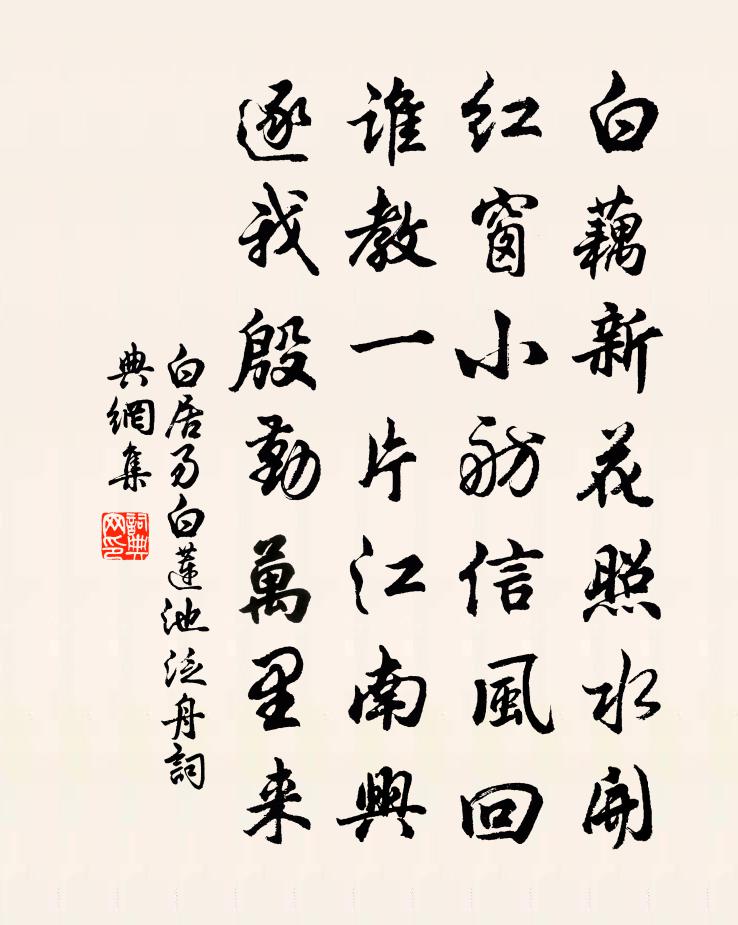 白藕新花照水開
紅窗小舫信風回
誰教一片江南興
逐我殷勤萬里来
白居易白蓮池泛舟詞
典網集
詞典網印